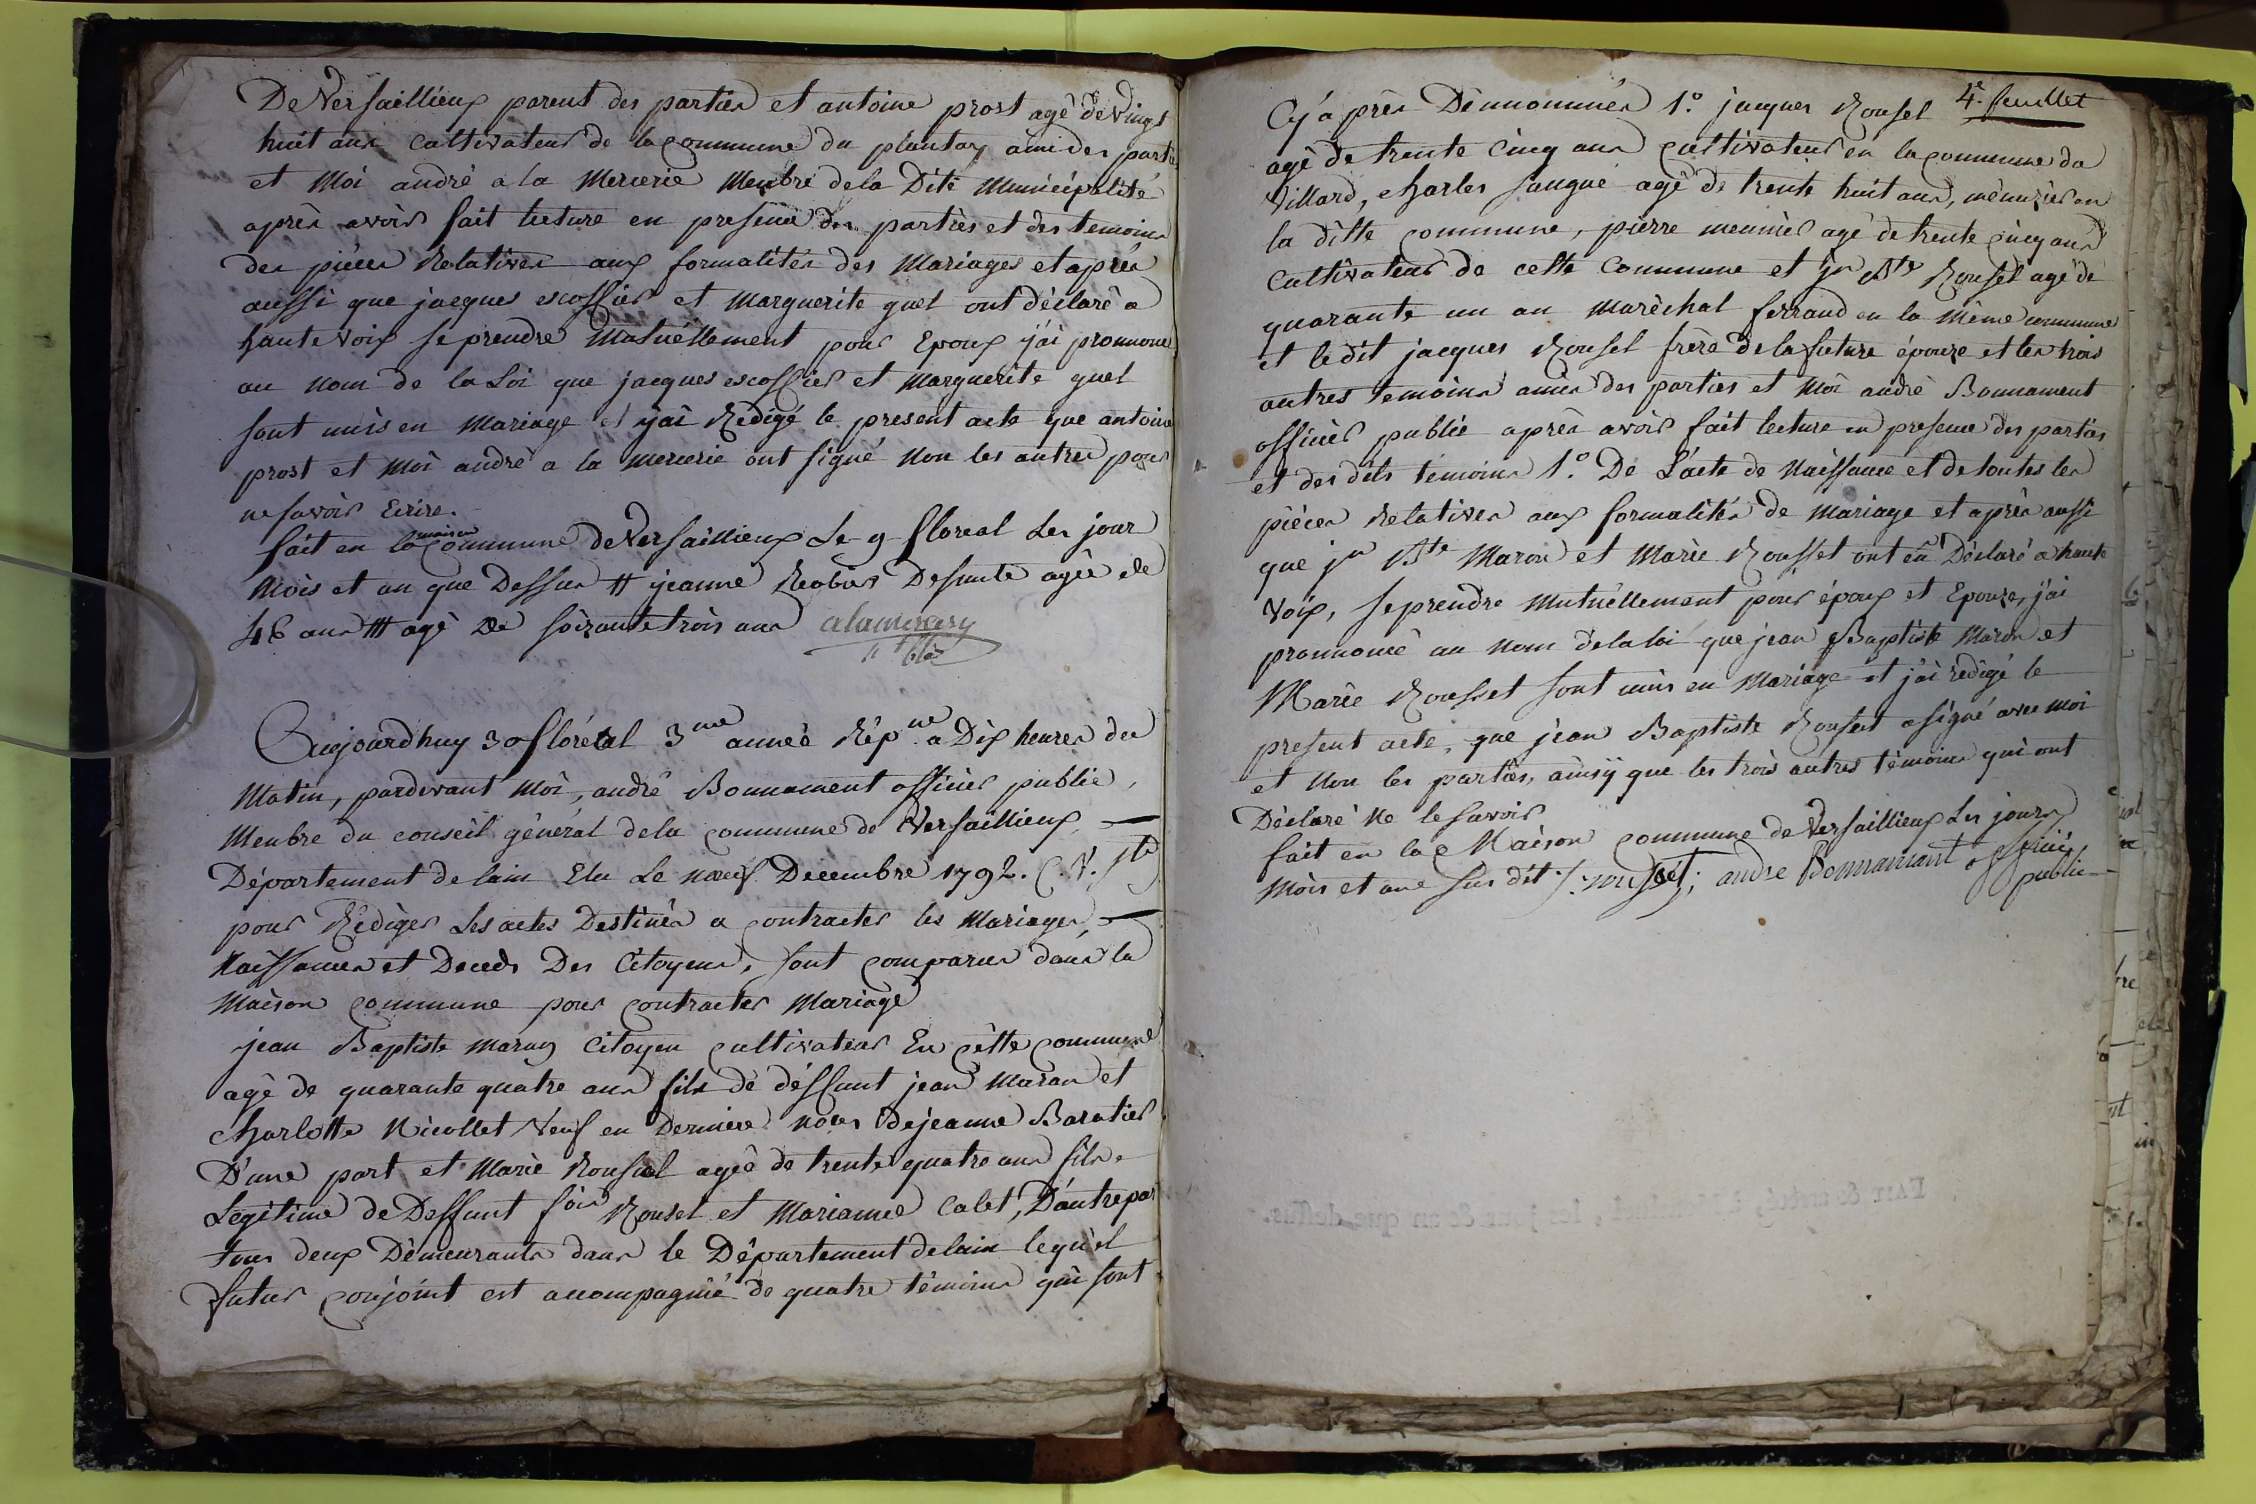 De Versaillieux parent des parties et antoine prost agé de Vingt
huit ans Cultivateur de la commune du plantay ami des partie
et Moi andré a la Mercerie Membre de la Dite Municipalité
après avoir fait lecture en presence des parties et des temoins
des pièces Relatives aux formalités des Mariages et après
aussi que jacques escoffier et Marguerite guel ont déclaré a
haute Voix se prendre Mutuellement pour Epoux j'ai prononcé
au nom de la Loi que jacques escoffier et Marguerite guel
sont unis en Mariage et j'ai Rédigé le present acte que antoine
prost et Moi andré a la mercerie ont signé Non les autres pour
ne savoir Ecrire.
fait en la maison Commune de Versaillieux Le 9 floreal Les jour
Mois et an que Dessus # jeanne Defunte agée de
46 ans ## agé De soixante trois ans alamercery
Aujourdhuy 30 floréal 3me année Répne a Dix heures du
Matin, pardevant Moi, andré Bonnament officier public,
Membre du conseil général dela commune de Versaillieux
Département de lain Elu Le neuf Decembre 1792. (V. Ste)
pour Rédiger Les actes Destinés a contracter les Mariages,
Naissances et Deceds Des Citoyens, sont comparus dans la
Maison commune pour contracter Mariage
jean Baptiste maron Citoyen cultivateur En cette commune
agé de quarante quatre ans fils de déffunt jean Maron et
Charlotte Nicollet Veuf en Derniere noces de jeanne Baratier
D'une part et Marie Rousset agée de trente quatre ans fille
Legitime de Deffunt Rousset et Marianne Calet, D'autre par
tous deux Démeurants dans le Département delain lequel
futur conjoint est acompagnié de quatre témoins qui sont
4e. feuillet
Cy après Dénnommés 1.° jacques Rousset
agé de trente Cinq ans cultivateur en la commune du
Villard, Charles agé de trente huit ans, ménuzier en
la ditte commune, pierre meunier agé de trente cinq ans
Cultivateur de cette Commune et jn Bte Rousset agé de
quarante un an maréchal ferrand en la même commune
et le dit jacques Rousset frère de la future épouze et les trois
autres témoins amis des parties et Moi andré Bonnament
officier public après avoir fait lecture en presence des parties
et des dits témoins 1.° De L'acte de Naissance et de toutes les
pièces Relatives aux formalités de Mariage et après aussi
que jn Bte Maron et Marie Rousset ont eû Déclaré a haute
Voix, se prendre Mutuéllement pour époux et Epouze, j'ai
pronnoncé au Nom de la loi que jean Baptiste Maron et
Marie Rousset sont unis en Mariage et j'ai rédigé le
present acte, que jean Baptiste Rousset a signé avec moi
et Non les parties, ainsÿ que les trois autres témoins qui ont
Déclaré Ne le savoir
fait en la Maison commune de Versaillieux Les jours
Mois et ans sus dit. j: rousset; andre Bonnamant officié
public